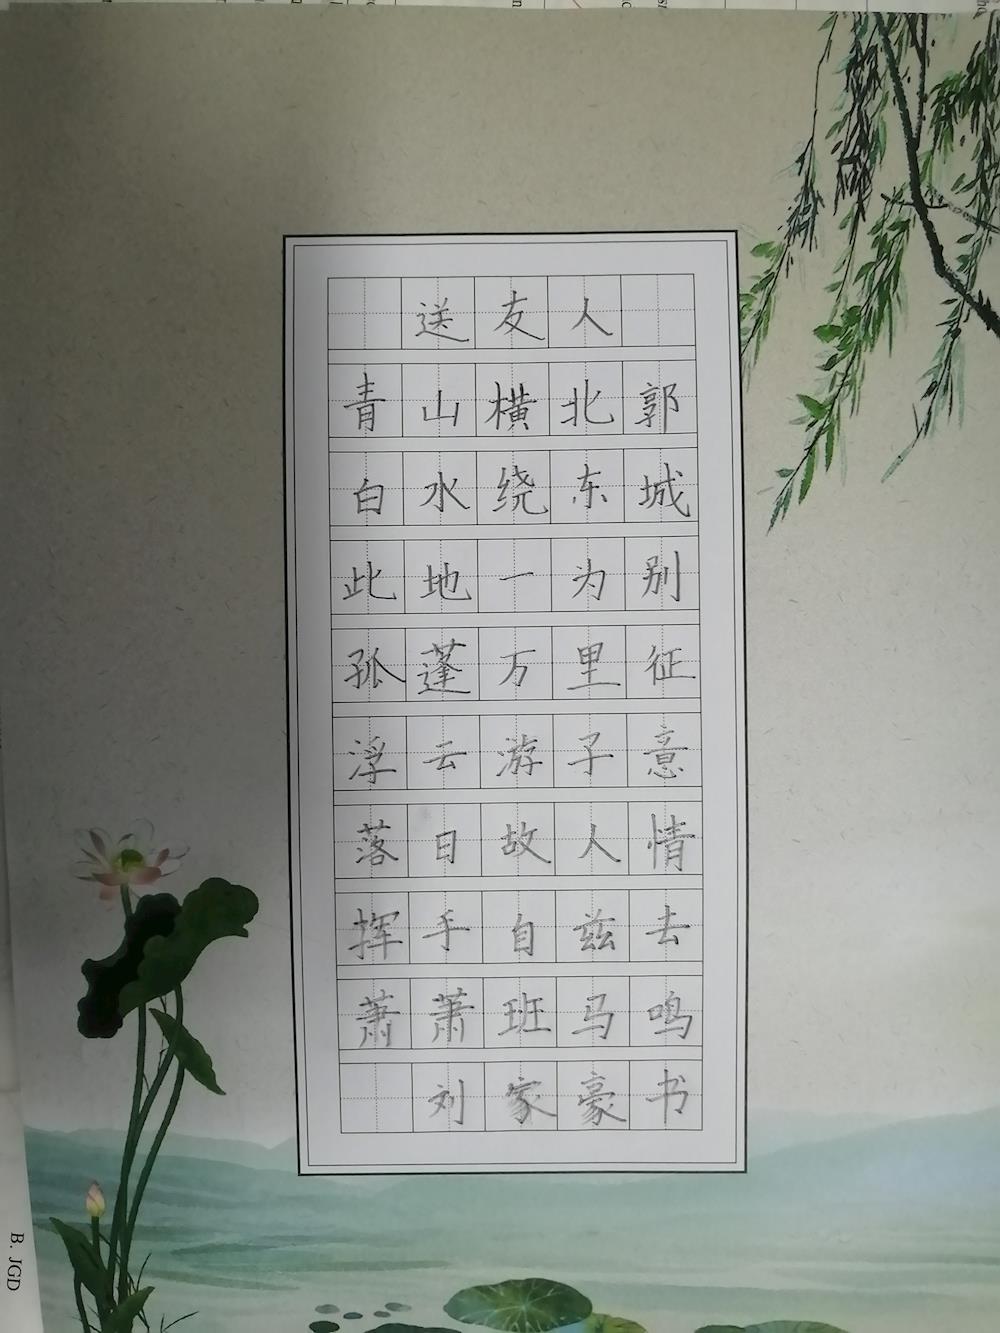 送友人
青山横北郭
白水绕东城
此地一为别
孤蓬万里征
浮云游子意
落日故人情
挥手自兹去
萧萧班马鸣
刘家豪书
B. JGD